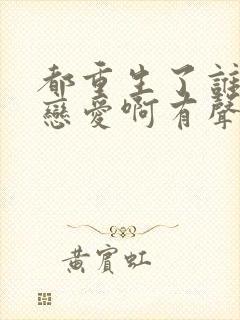 都重生了誰
戀愛啊有聲
黃賓虹